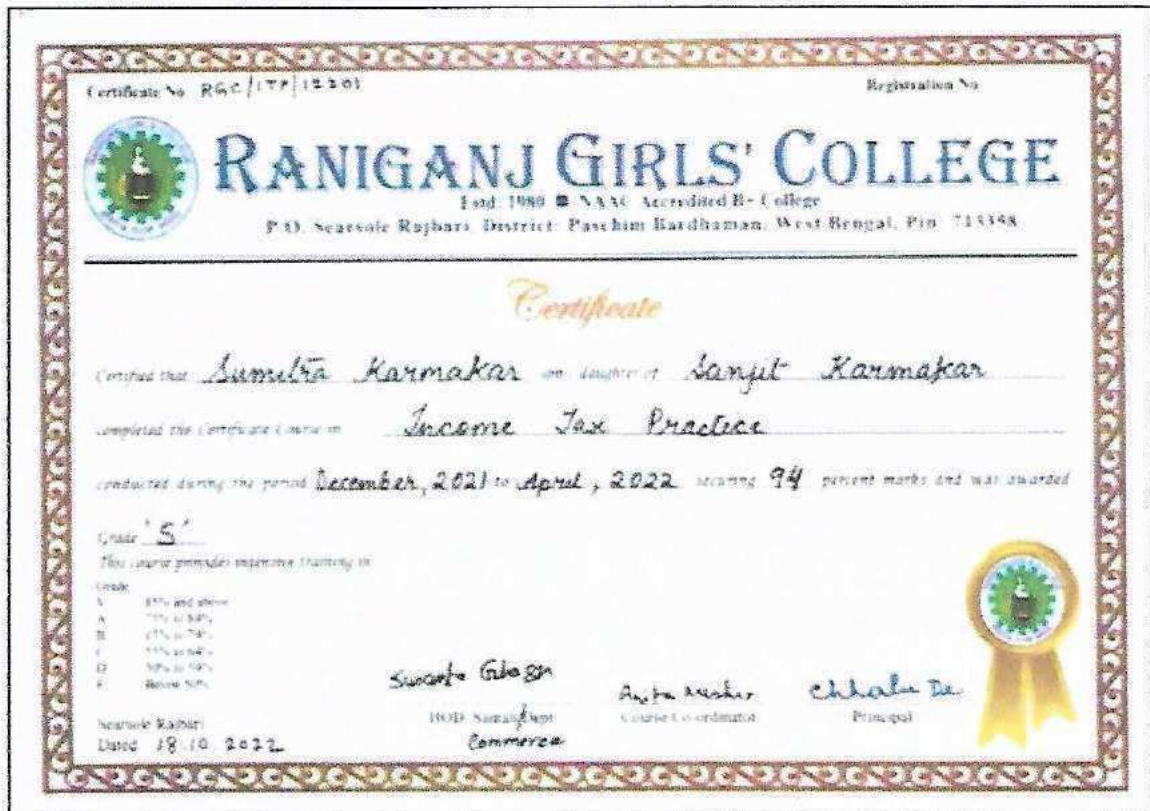 Certificate No RGC/ITP/12201
Registration No
RANIGANJ GIRLS' COLLEGE
Estd 1980 NAAC Accredited B+ College
P.O. Searsole Rajbari, District: Paschim Bardhaman, West Bengal, Pin 713358
Certificate
Certified that Sumitra Karmakar son daughter of Sanjit Karmakar
completed the Certificate Course in Income Tax Practice
conducted during the period December, 2021 to April, 2022 securing 94 percent marks and was awarded
Grade 'S'
This course provides intensive training in
Grade
85% and above
A 75% to 84%
B 65% to 74%
C 55% to 64%
D 50% to 54%
Below 50%
HOD Dept
Commerce
Course Co-ordinator
Chhabi De
Principal
Searsole Rajbari
Dated 18.10.2022